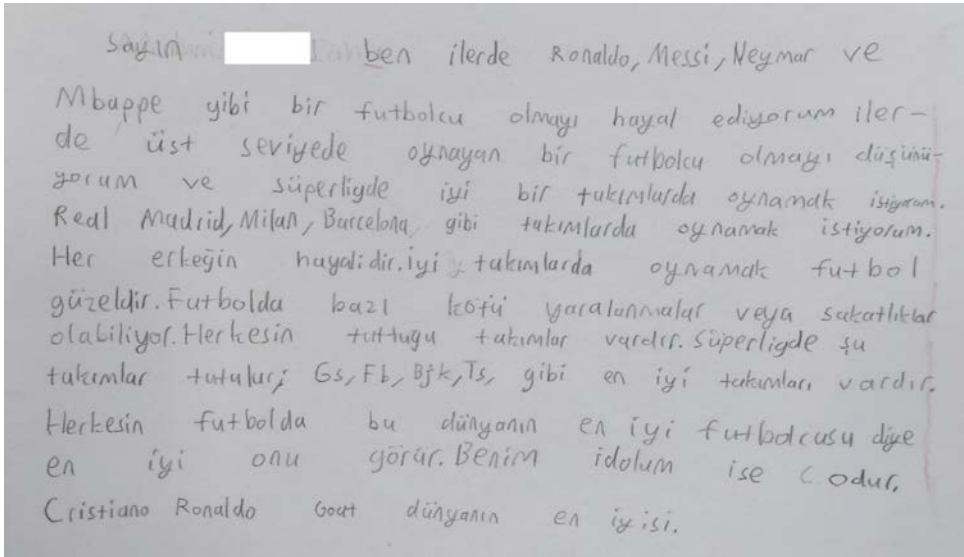 Sayın ben ilerde Ronaldo, Messi, Neymar ve
Mbappe gibi bir futbolcu olmayı hayal ediyorum iler-
de üst seviyede oynayan bir futbolcu olmayı düşünü-
yorum ve süperligde iyi bir takımlarda oynamak istiyorum.
Real Madrid, Milan, Barcelona gibi takımlarda oynamak istiyorum.
Her erkeğin hayalidir. iyi takımlarda oynamak futbol
güzeldir. Futbolda bazı kötü yaralanmalar veya sakatlıklar
olabiliyor. Herkesin tuttuğu takımlar vardır. Süperligde şu
takımlar tutulur; Gs, Fb, Bjk, Ts, gibi en iyi takımları vardır.
Herkesin futbolda bu dünyanın en iyi futbolcusu diye
en iyi onu görür. Benim idolum ise odur.
Cristiano Ronaldo Goat dünyanın en iyisi.